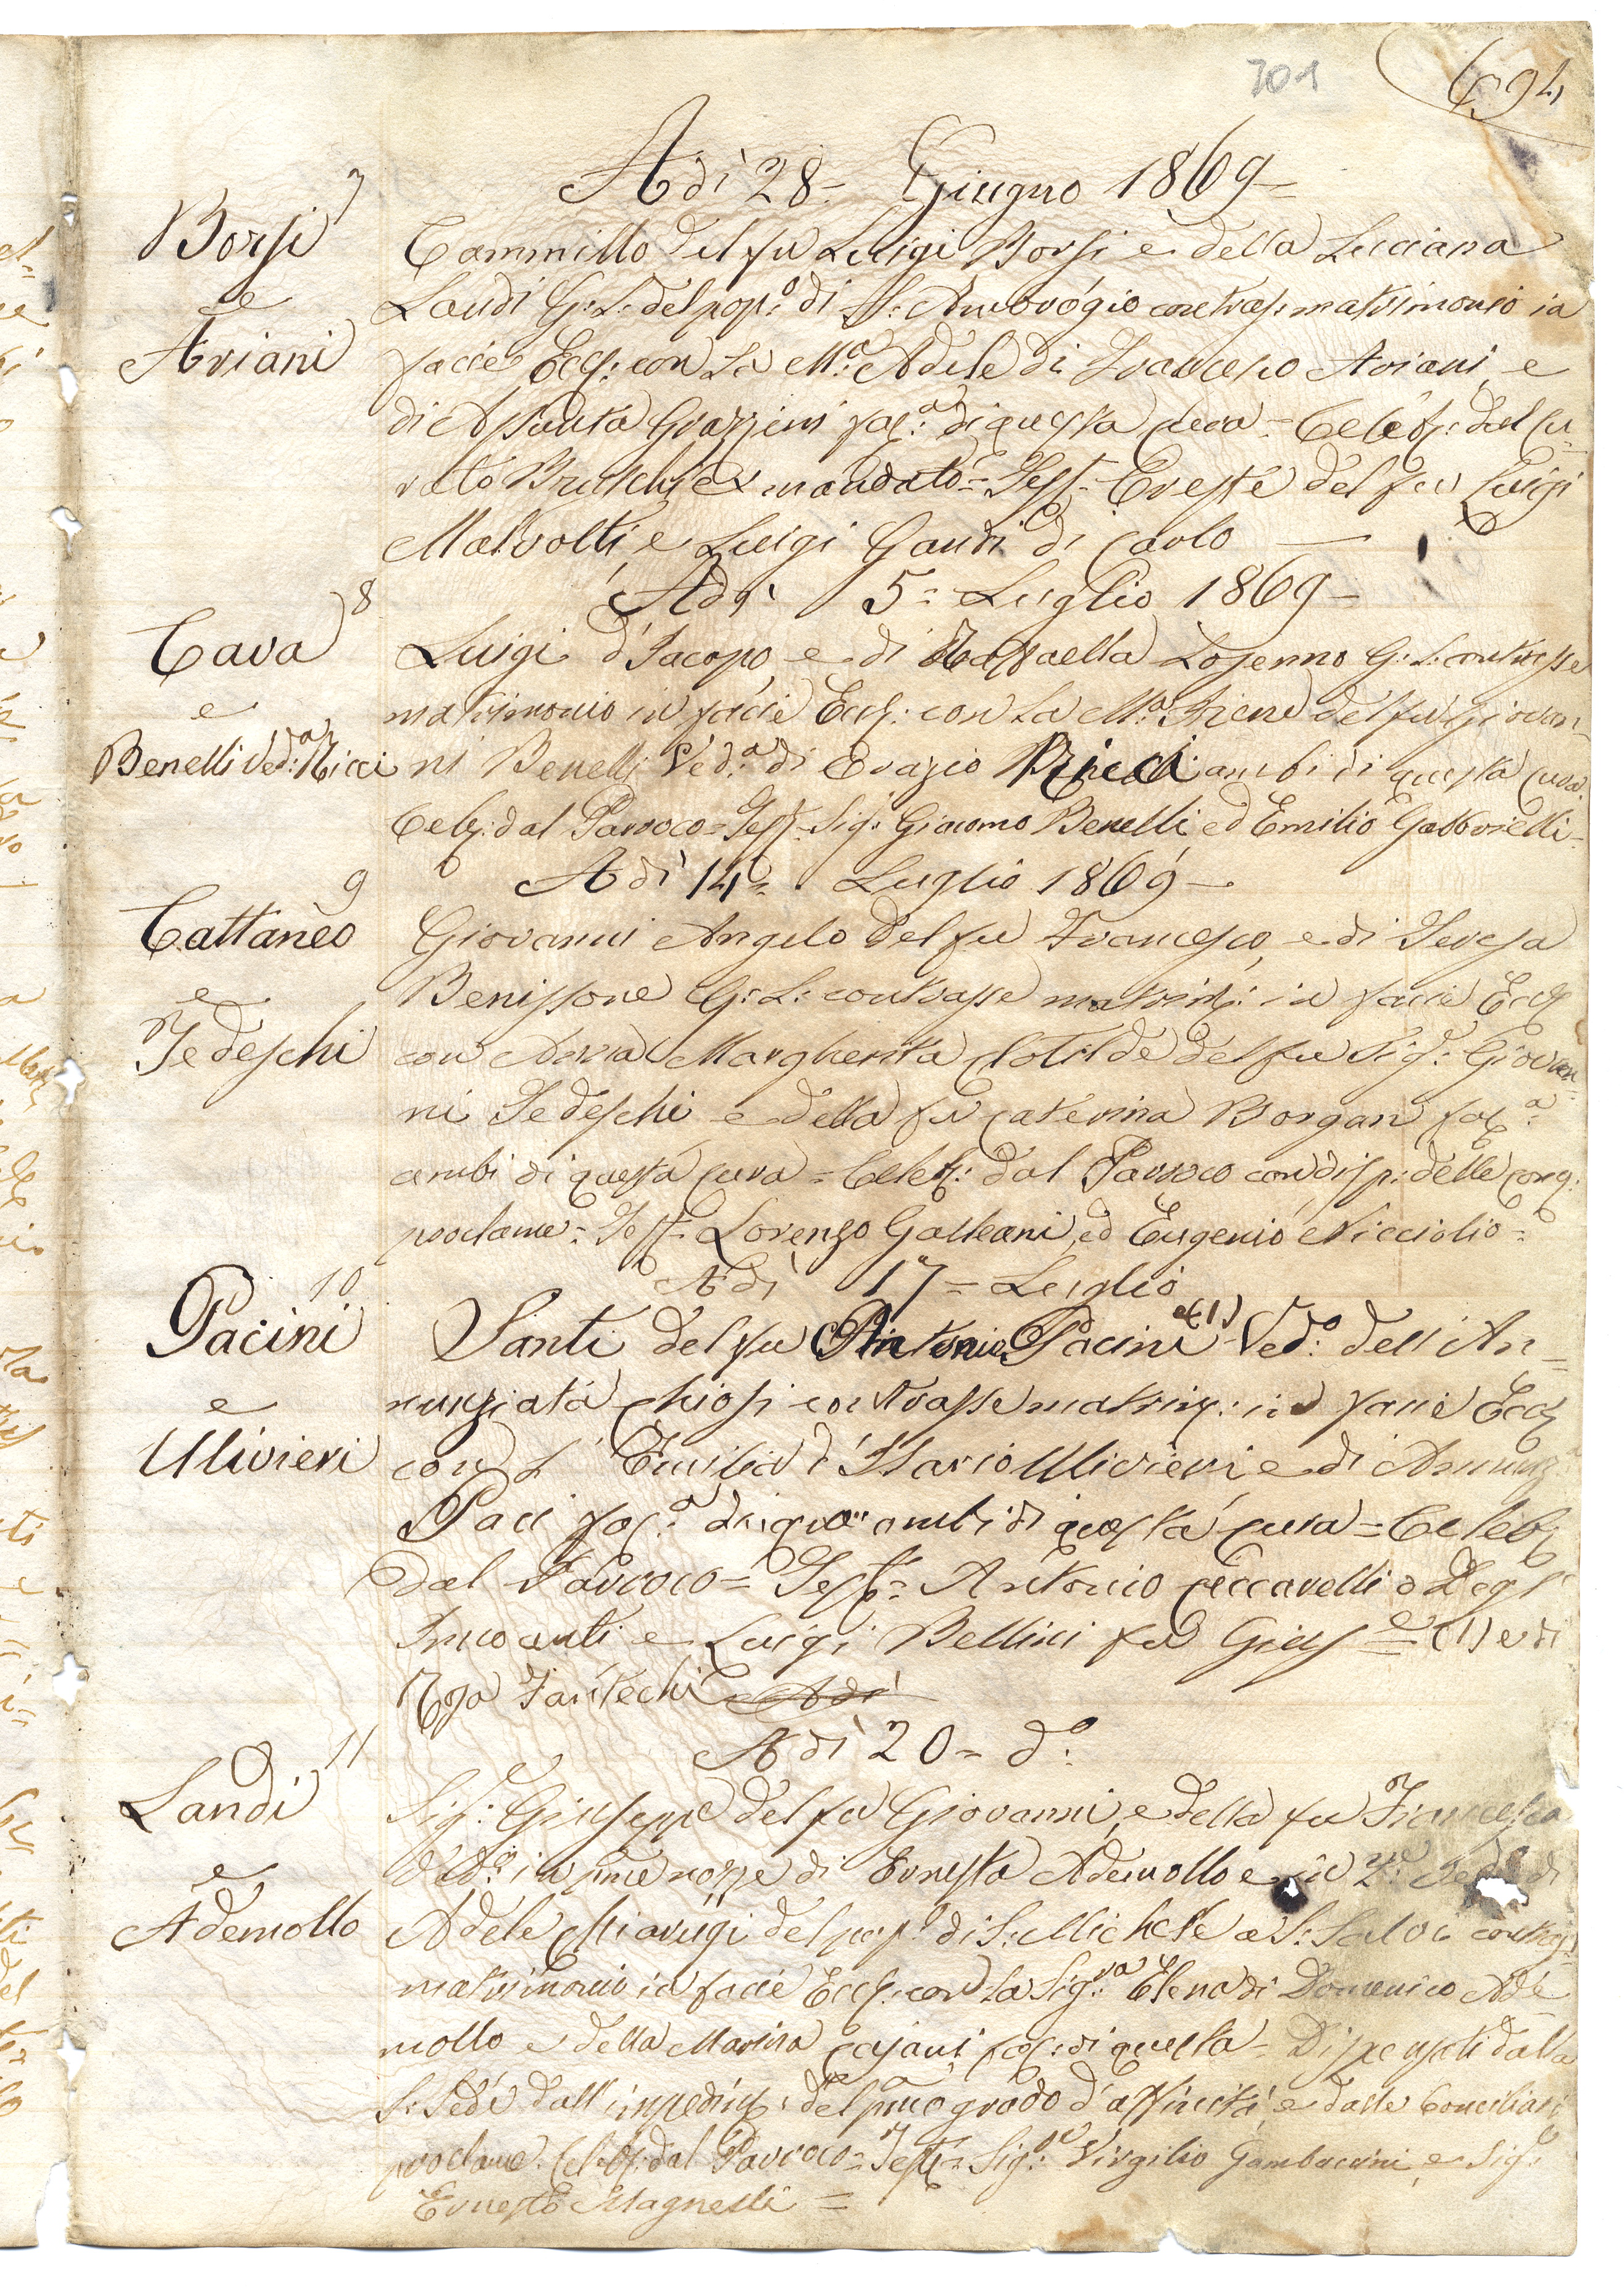 701
694
Adì 28= Giugno 1869=
7
Borsi
e
Ariani
Cammillo del fu Luigi Borsi e della Luciana
Landi G: L: del pop:o di S: Ambrogio contras: matrimonio in
facie Eccl: con la M:a Adele di Francesco Ariani, e
di Assunta Grazzini fac:a di questa Cura = Celeb: dal Cu=
rato Bruschi ex mandato = Test= Oreste del fu Luigi
Malvolti, e Luigi Gaudi di Carlo
Adì 5= Luglio 1869=
8
Cava
e
Benelli Ved:a Ricci
Luigi d'Jacopo, e di Raffaella G: L: contrasse
matrimonio in facie Eccl: con la M:a Irene del fu Giovan=
ni Benelli Ved:a di Orazio Ricci ambi di questa Cura.
Celeb: dal Parroco= Test= Sig: Giacomo Benelli, ed Emilio Gabbrielli=
Adì 14= Luglio 1869=
9
Cattaneo
e
Tedeschi
Giovanni Angelo del fu Francesco, e di Teresa
Benissone G: L: contrasse matrim: in facie Eccl
con Anna Margherita Clotilde del fu Sig:e Giovan=
ni Tedeschi e della fu Caterina Borgan fac:a
ambi di questa Cura = Celeb: dal Parroco con disp: delle cong:
proclame= Test= Lorenzo Galleani, ed Eugenio Nicciolio=
Adì 17= Luglio
10
Pacini
e
Ulivieri
Santi del fu Antonio Pacini (1) Ved:o dell'An=
nunziata Chiosi contrasse matrim: in facie Eccl
con l' Emilia d'Ilario Ulivieri e di Annunz
Paci fac:a ambi di questa Cura = Celeb
dal Parroco= Test= Antonio Ceccarelli o Degl'
Innocenti e Luigi Bellini fu Gius:e = (1) e di
Rosa Fantechi Adì
Adì 20= d:o
11
Landi
e
Ademollo
Sig:e Giuseppe del fu Giovanni, e della fu Francesca
Ved:o in p:me nozze di Ernesta Ademollo e in 2:de di
Adele Chiarugi del pop:o di S: Michele a S: Salvi contras=
matrimonio in facie Eccl: con la Sig:ra Elena di Domenico Ade
mollo e della Marina Cajani fac: di questa= Dispensati dalla
S: Sede dall'impedim: del p:mo grado d'affinità, e dalle Conciliari
proclame. Celeb: dal Parroco= Test= Sig:e Virgilio Gambacini e Sig:e
Ernesto Magnelli =